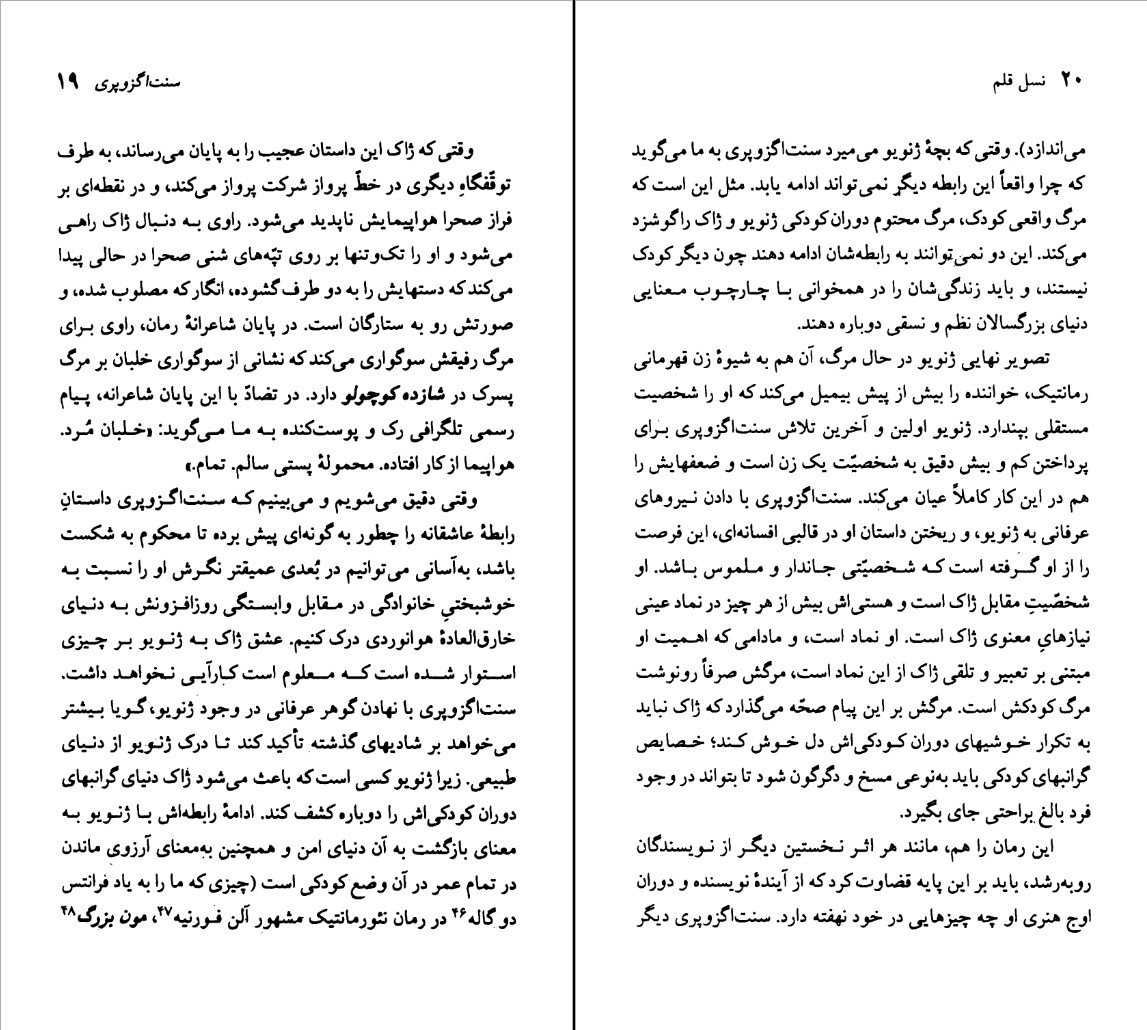 سنت‌اگزوپری ۱۹
وقتی که ژاک این داستان عجیب را به پایان می‌رساند، به طرف
توقّفگاهِ دیگری در خطّ پرواز شرکت پرواز می‌کند، و در نقطه‌ای بر
فراز صحرا هواپیمایش ناپدید می‌شود. راوی به دنبال ژاک راهی
می‌شود و او را تک‌وتنها بر روی تپّه‌های شنی صحرا در حالی پیدا
می‌کند که دستهایش را به دو طرف گشوده، انگار که مصلوب شده، و
صورتش رو به ستارگان است. در پایان شاعرانهٔ رمان، راوی برای
مرگ رفیقش سوگواری می‌کند که نشانی از سوگواری خلبان بر مرگ
پسرک در شازده کوچولو دارد. در تضادّ با این پایان شاعرانه، پیام
رسمی تلگرافی رک و پوست‌کنده به ما می‌گوید: «خلبان مُرد.
هواپیما از کار افتاده. محمولهٔ پستی سالم. تمام.»
وقتی دقیق می‌شویم و می‌بینیم که سنت‌اگزوپری داستانِ
رابطهٔ عاشقانه را چطور به گونه‌ای پیش برده تا محکوم به شکست
باشد، به‌آسانی می‌توانیم در بُعدی عمیقتر نگرش او را نسبت به
خوشبختیِ خانوادگی در مقابل وابستگی روزافزونش به دنیای
خارق‌العادهٔ هوانوردی درک کنیم. عشق ژاک به ژنویو بر چیزی
استوار شده است که معلوم است کارآیی نخواهد داشت.
سنت‌اگزوپری با نهادن گوهر عرفانی در وجود ژنویو، گویا بیشتر
می‌خواهد بر شادیهای گذشته تأکید کند تا درک ژنویو از دنیای
طبیعی. زیرا ژنویو کسی است که باعث می‌شود ژاک دنیای گرانبهای
دوران کودکی‌اش را دوباره کشف کند. ادامهٔ رابطه‌اش با ژنویو به
معنای بازگشت به آن دنیای امن و همچنین به‌معنای آرزوی ماندن
در تمام عمر در آن وضع کودکی است (چیزی که ما را به یاد فرانتس
دو گاله۴۶ در رمان نئورمانتیک مشهور آلن فورنیه۴۷، مون بزرگ۴۸
۲۰ نسل قلم
می‌اندازد). وقتی که بچهٔ ژنویو می‌میرد سنت‌اگزوپری به ما می‌گوید
که چرا واقعاً این رابطه دیگر نمی‌تواند ادامه یابد. مثل این است که
مرگ واقعی کودک، مرگ محتوم دوران کودکی ژنویو و ژاک را گوشزد
می‌کند. این دو نمی‌توانند به رابطه‌شان ادامه دهند چون دیگر کودک
نیستند، و باید زندگی‌شان را در همخوانی با چارچوب معنایی
دنیای بزرگسالان نظم و نسقی دوباره دهند.
تصویر نهایی ژنویو در حال مرگ، آن هم به شیوهٔ زن قهرمانی
رمانتیک، خواننده را بیش از پیش بیمیل می‌کند که او را شخصیت
مستقلی بپندارد. ژنویو اولین و آخرین تلاش سنت‌اگزوپری برای
پرداختن کم و بیش دقیق به شخصیّت یک زن است و ضعفهایش را
هم در این کار کاملاً عیان می‌کند. سنت‌اگزوپری با دادن نیروهای
عرفانی به ژنویو، و ریختن داستان او در قالبی افسانه‌ای، این فرصت
را از او گرفته است که شخصیّتی جاندار و ملموس باشد. او
شخصّیتِ مقابل ژاک است و هستی‌اش بیش از هر چیز در نماد عینی
نیازهایِ معنوی ژاک است. او نماد است، و مادامی که اهمیت او
مبتنی بر تعبیر و تلقی ژاک از این نماد است، مرگش صرفاً رونوشت
مرگ کودکش است. مرگش بر این پیام صحّه می‌گذارد که ژاک نباید
به تکرار خوشیهای دوران کودکی‌اش دل خوش کند؛ خصایص
گرانبهای کودکی باید به‌نوعی مسخ و دگرگون شود تا بتواند در وجود
فرد بالغ براحتی جای بگیرد.
این رمان را هم، مانند هر اثر نخستین دیگر از نویسندگان
روبه‌رشد، باید بر این پایه قضاوت کرد که از آیندهٔ نویسنده و دوران
اوج هنری او چه چیزهایی در خود نهفته دارد. سنت‌اگزوپری دیگر